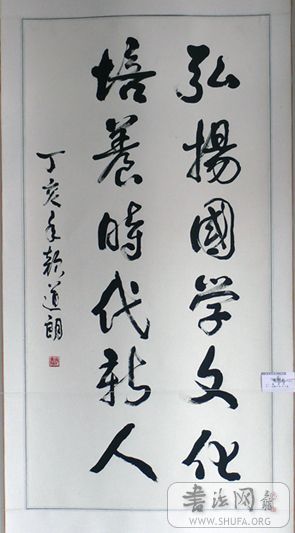 弘揚國学文化
培養時代新人
丁亥年韩道朗
書法网
WWW.SHUFA.ORG